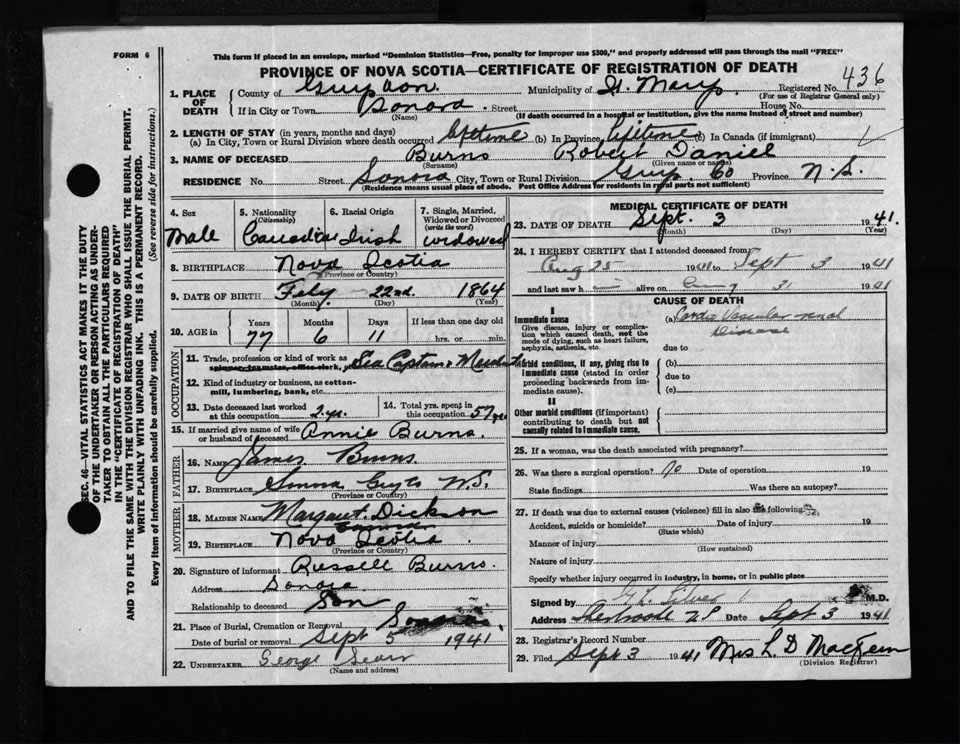 FORM 6
This form if placed in an envelope, marked "Dominion Statistics—Free, penalty for improper use $300," and properly addressed will pass through the mail "FREE"
PROVINCE OF NOVA SCOTIA—CERTIFICATE OF REGISTRATION OF DEATH
SEC. 46—VITAL STATISTICS ACT MAKES IT THE DUTY
OF THE UNDERTAKER OR PERSON ACTING AS UNDER-
TAKER TO OBTAIN ALL THE PARTICULARS REQUIRED
IN THE "CERTIFICATE OF REGISTRATION OF DEATH"
AND TO FILE THE SAME WITH THE DIVISION REGISTRAR WHO SHALL ISSUE THE BURIAL PERMIT.
WRITE PLAINLY WITH UNFADING INK. THIS IS A PERMANENT RECORD.
Every item of information should be carefully supplied. (See reverse side for instructions.)
1. PLACE OF DEATH County of Municipality of St. Marys Registered No. 436
(For use of Registrar General only)
If in City or Town Sonora Street House No.
(Name) (If death occurred in a hospital or institution, give the name instead of street and number)
2. LENGTH OF STAY (in years, months and days)
(a) In City, Town or Rural Division where death occurred lifetime (b) In Province lifetime (c) In Canada (if immigrant)
3. NAME OF DECEASED Burns Robert Daniel
(Surname) (Given name or names)
RESIDENCE No. Street Sonora City, Town or Rural Division Guys. Co Province N.S.
(Residence means usual place of abode. Post Office Address for residents in rural parts not sufficient)
4. Sex Male
5. Nationality (Citizenship) Canadian
6. Racial Origin Irish
7. Single, Married, Widowed or Divorced (write the word) widowed
8. BIRTHPLACE Nova Scotia
(Province or Country)
9. DATE OF BIRTH 22nd. 1864
(Month) (Day) (Year)
10. AGE in Years 77 Months 6 Days 11 If less than one day old hrs. or min.
OCCUPATION
11. Trade, profession or kind of work as Sea Captain &
spinner, teamster, office clerk,
12. Kind of industry or business, as cotton-
mill, lumbering, bank, etc.
13. Date deceased last worked
at this occupation 2 yrs.
14. Total yrs. spent in
this occupation 57 yrs
15. If married give name of wife
or husband of deceased Annie Burns.
FATHER
16. NAME James Burns.
17. BIRTHPLACE N.S.
(Province or Country)
MOTHER
18. MAIDEN NAME Margaret Dickson
19. BIRTHPLACE Nova Scotia
(Province or Country)
20. Signature of informant Russell Burns.
Address Sonora
Relationship to deceased Son
21. Place of Burial, Cremation or Removal Sonora
Date of burial or removal Sept 5 1941
22. UNDERTAKER George
(Name and address)
MEDICAL CERTIFICATE OF DEATH
23. DATE OF DEATH Sept. 3 1941.
(Month) (Day) (Year)
24. I HEREBY CERTIFY that I attended deceased from
Aug 25 1941 to Sept 3 1941
and last saw h alive on Aug 31 1941
CAUSE OF DEATH
I
Immediate cause
Give disease, injury or complica-
tion which caused death, not the
mode of dying, such as heart failure,
asphyxia, asthenia, etc.
(a) Cardio Vascular renal
Disease
due to
Morbid conditions, if any, giving rise to
immediate cause (stated in order
proceeding backwards from im-
mediate cause).
(b)
due to
(c)
II
Other morbid conditions (if important)
contributing to death but not
causally related to immediate cause.
25. If a woman, was the death associated with pregnancy?
26. Was there a surgical operation? No Date of operation 19
State findings Was there an autopsy?
27. If death was due to external causes (violence) fill in also the following:
Accident, suicide or homicide? Date of injury 19
(State which)
Manner of injury
(How sustained)
Nature of injury
Specify whether injury occurred in industry, in home, or in public place
Signed by Silver M.D.
Address Sherbrooke NS Date Sept 3 1941
28. Registrar's Record Number
29. Filed Sept 3 1941 Mrs L. D MacKeen
(Division Registrar)